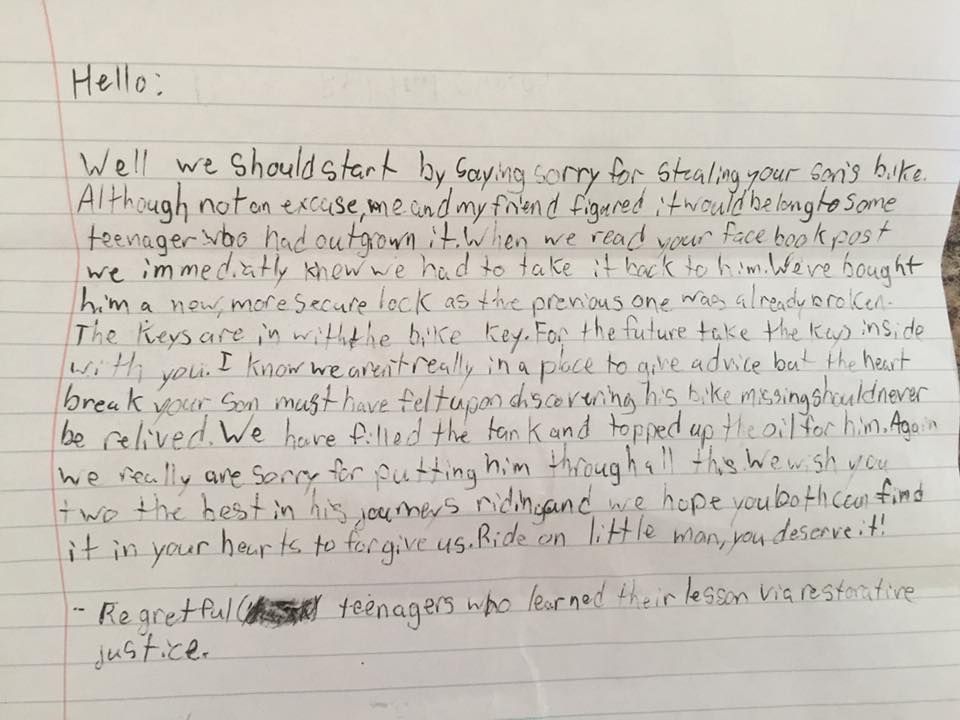 Hello:
Well we should start by saying sorry for stealing your son's bike.
Although not an excuse, me and my friend figured it would belong to some
teenager who had outgrown it. When we read your facebook post
we immediatly knew we had to take it back to him. We've bought
him a new, more secure lock as the previous one was already broken.
The keys are in with the bike key. For the future take the keys inside
with you. I know we aren't really in a place to give advice but the heart
break your son must have felt upon discovering his bike missing should never
be relived. We have filled the tank and topped up the oil for him. Again
we really are sorry for putting him through all this. We wish you
two the best in his journeys riding and we hope you both can find
it in your hearts to forgive us. Ride on little man, you deserve it!
- Regretful teenagers who learned their lesson via restorative
justice.